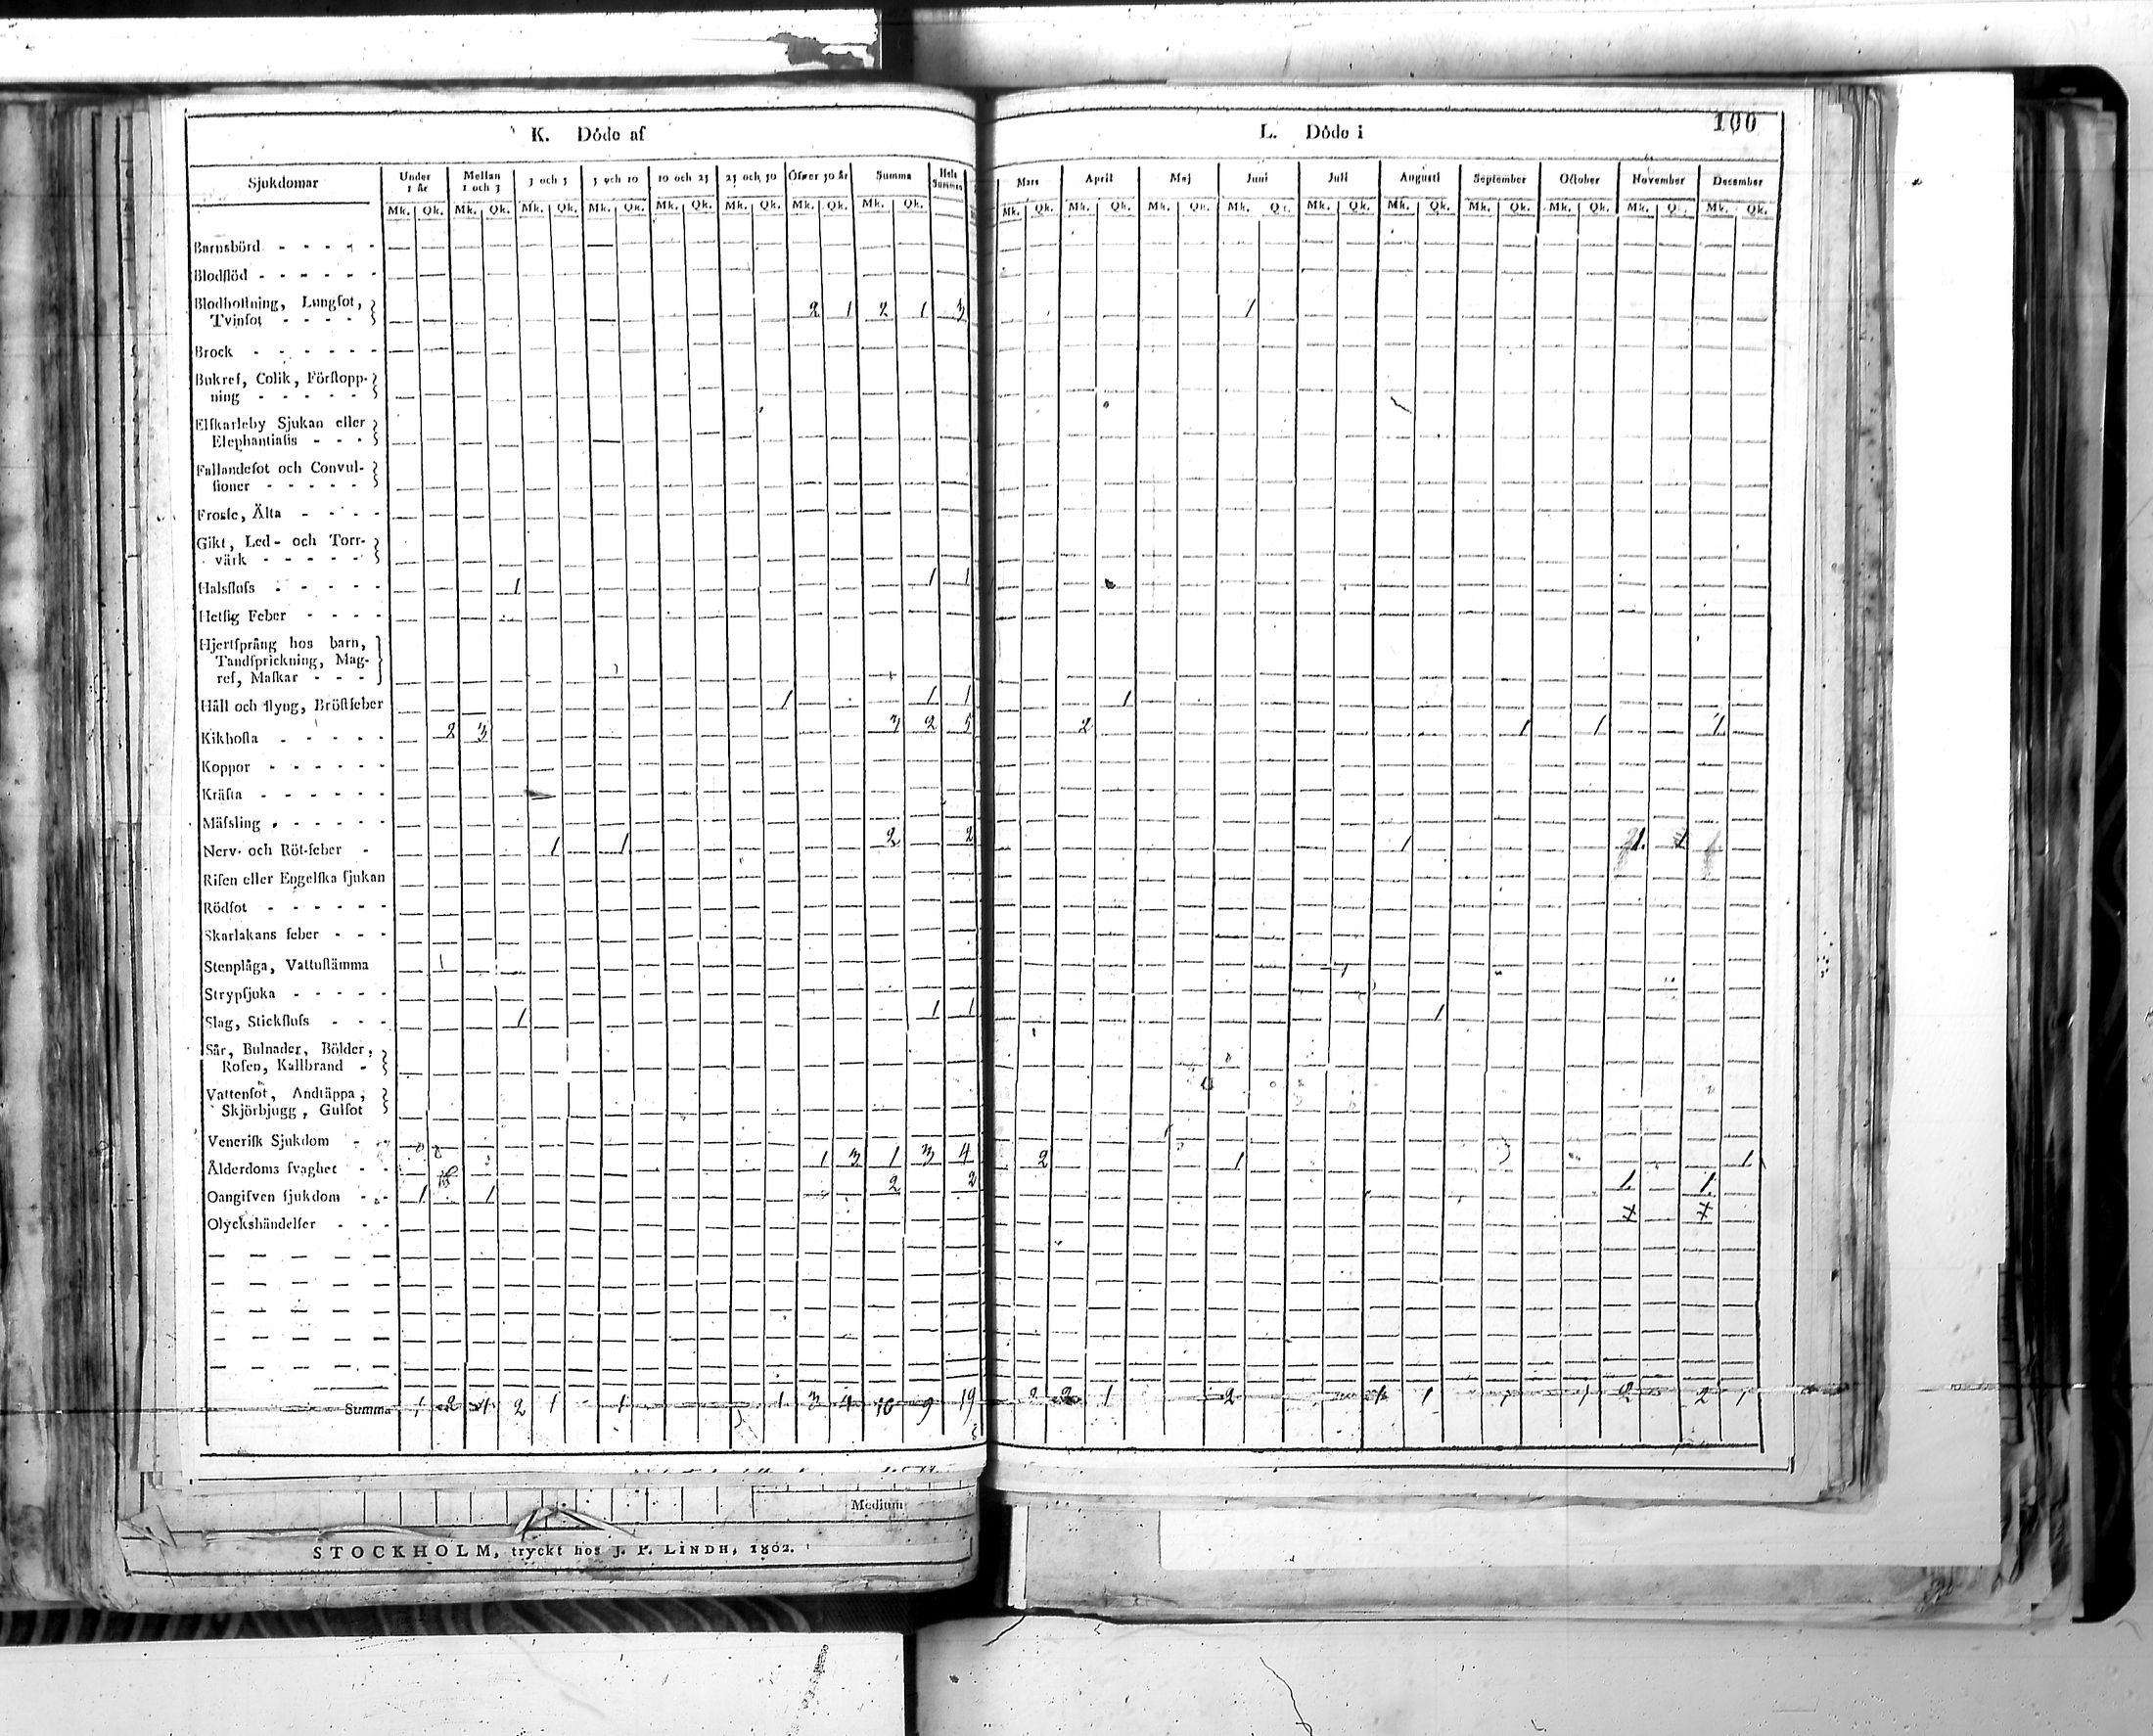 K. Döde af
Sjukdomar Under 1 år Mellan 1 och 3 3 och 5 5 och 10 10 och 25 25 och 50 Öfver 50 år Summa Hela Summan
Mk. Qk. Mk. Qk. Mk. Qk. Mk. Qk. Mk. Qk. Mk. Qk. Mk. Qk. Mk. Qk.
Barnsbörd - - - - -
Blodflöd - - - - - -
Blodhoſtning, Lungſot,
Tvinſot - - - - 2 1 2 1 3
Brock - - - - - -
Bukref, Colik, Förſtopp-
ning - - - - -
Elſkarleby Sjukan eller
Elephantiaſis - - -
Fallandeſot och Convul-
ſioner - - - - -
Froſſe, Älta - - - -
Gikt, Led- och Torr-
värk - - - - -
Halsfluſs - - - - - 1 1 1
Hetſig Feber - - - -
Hjertſprång hos barn,
Tandſprickning, Mag-
ref, Maſkar - - -
Håll och ſtyng, Bröſtfeber 1 1 1
Kikhoſta - - - - - 2 3 3 2 5
Koppor - - - - - -
Kräfta - - - - - -
Mäſsling - - - - - -
Nerv- och Röt-feber - 1 1 2 2
Riſen eller Engelſka ſjukan
Rödſot - - - - - -
Skarlakans feber - - -
Stenplåga, Vattuſtämma
Strypſjuka - - - - -
Slag, Stickfluſs - - - 1 1 1
Sår, Bulnader, Bölder,
Roſen, Kallbrand -
Vattenſot, Andtäppa,
Skjörbjugg, Gulſot
Veneriſk Sjukdom -
Ålderdoms ſvaghet - - 1 3 1 3 4
Oangifven ſjukdom - - 1 1 2 2
Olyckshändelſer - - -
Summa 1 2 4 2 1 1 1 3 4 10 9 19
Medium
STOCKHOLM, tryckt hos J. P. LINDH, 1802.
L. Döde i
100
Mars April Maj Juni Juli Auguſti September October November December
Mk. Qk. Mk. Qk. Mk. Qk. Mk. Qk. Mk. Qk. Mk. Qk. Mk. Qk. Mk. Qk. Mk. Qk. Mk. Qk.
1
1
2 1 1 1
1
1
2 1 1
1 1
2 2 1 2 1 1 1 1 2 2 1